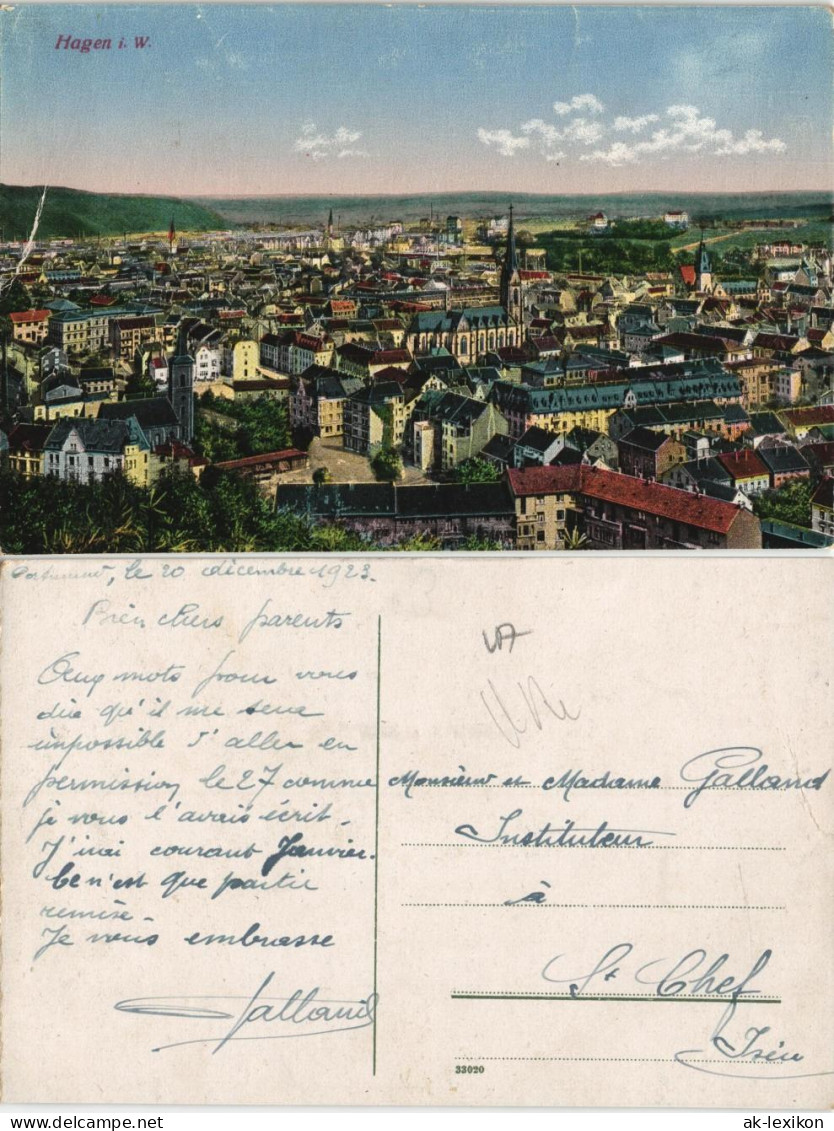 Hagen i. W.
le 20 décembre 1923.
Bien chers parents
Deux mots pour vous
dire qu'il me sera
impossible d'aller en
permission le 27 comme
je vous l'avais écrit.
J'irai courant Janvier.
Ce n'est que partie
remise.
Je vous embrasse
Galland
Monsieur et Madame Galland
Instituteur
à
St Chef
Isère
33020
Website: ak-lexikon.de
ak-lexikon